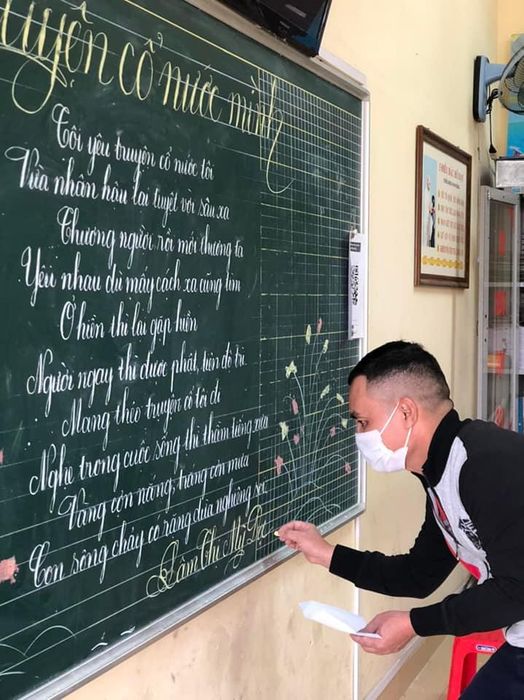 uyện cổ nước mình
Tôi yêu truyện cổ nước tôi
Vừa nhân hậu lại tuyệt vời sâu xa
Thương người rồi mới thương ta
Yêu nhau dù mấy cách xa cũng tìm
Ở hiền thì lại gặp hiền
Người ngay thì được phật, tiên độ trì
Mang theo truyện cổ tôi đi
Nghe trong cuộc sống thì thầm tiếng xưa
Vàng cơn nắng, trắng cơn mưa
Con sông chảy có rặng dừa nghiêng soi.
Lâm Thị Mỹ Dạ